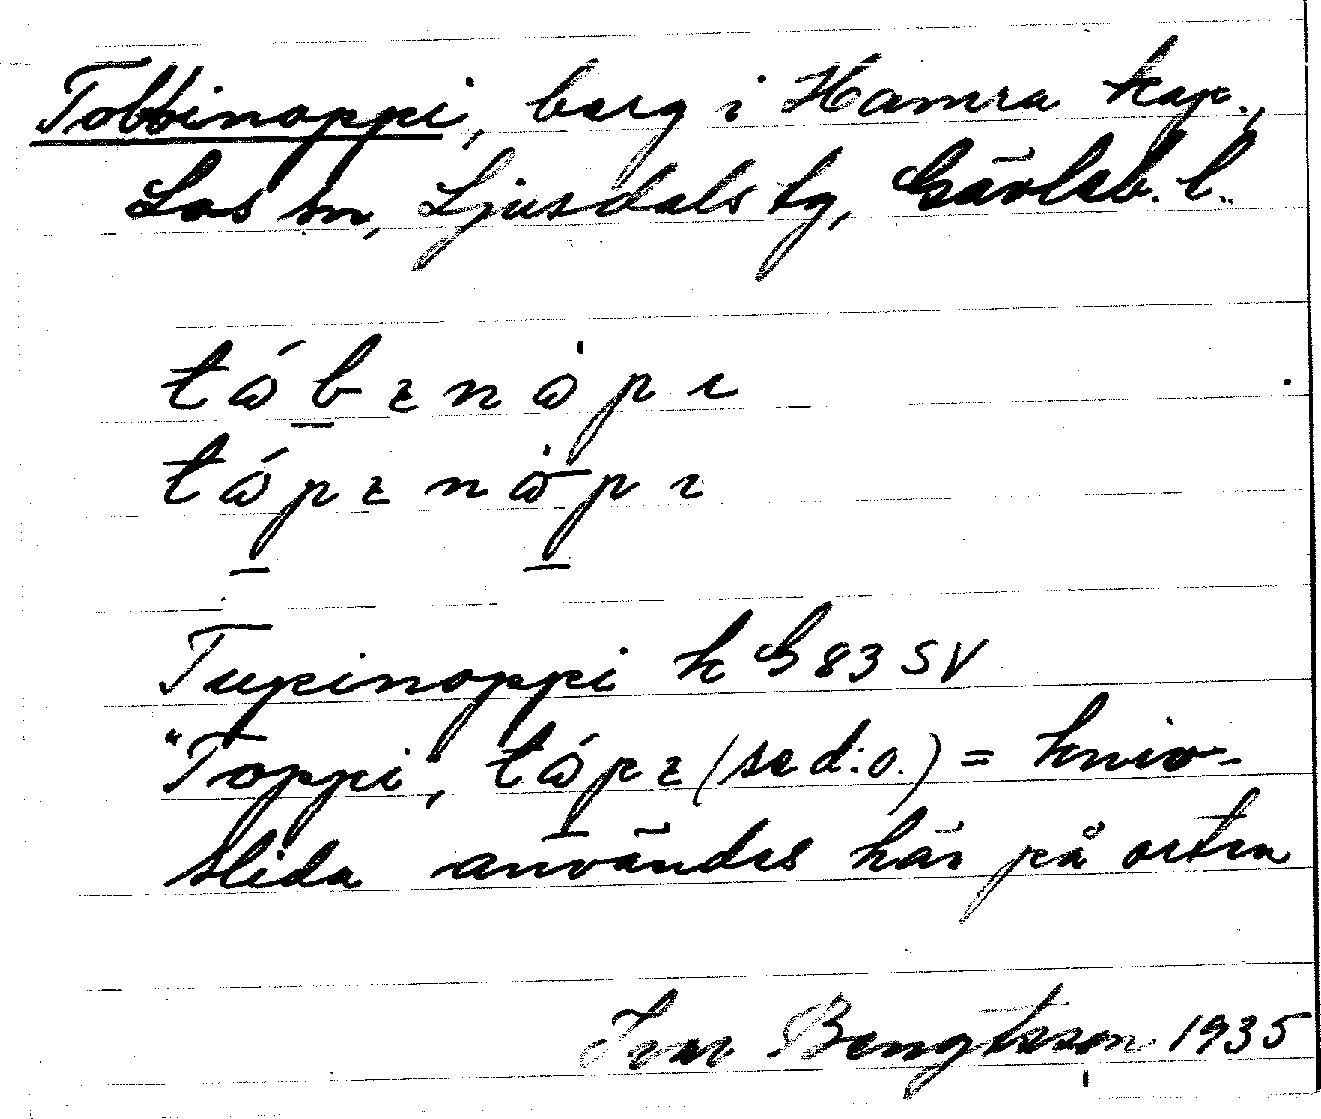 Tobbinoppi, berg i Hamra kap.,
Los sn, Ljusdals tg, Gävleb. l.
tɷ́bɪnɷ̀pɪ
tɷ́pɪnɷ̀pɪ
Tupinoppi k G 83 SV
"Toppi", tɷ́pɪ (se d:o.) = kniv-
slida användes här på orten
Ivar Bengtsson 1935